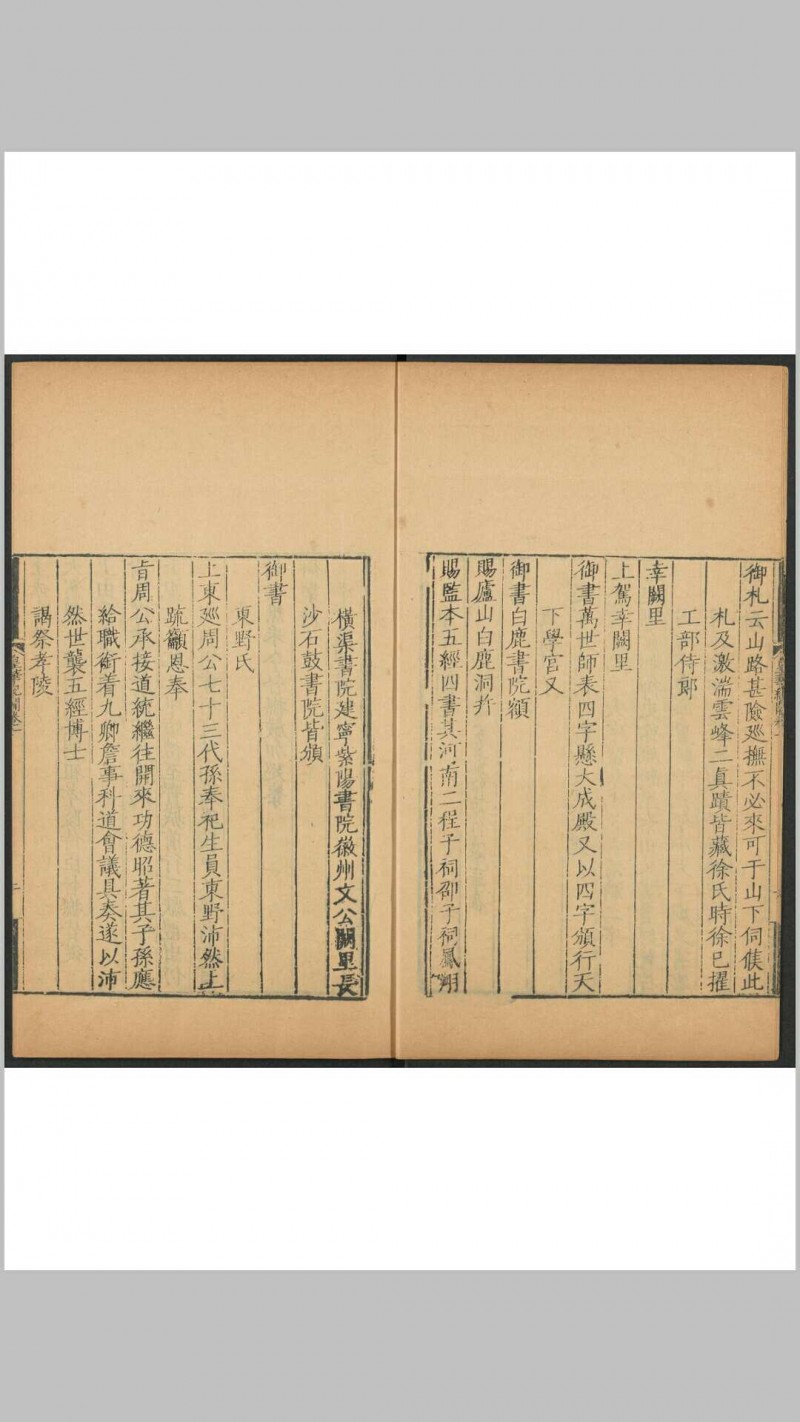 御札云山路甚險廵撫不必來可于山下伺候此
札及激湍雲峰二真蹟皆藏徐氏時徐已擢
工部侍郎
幸闕里
上駕幸闕里
御書萬世師表四字懸大成殿又以四字頒行天
下學宮又
御書白鹿書院額
賜廬山白鹿洞并
賜監本五經四書其河南二程子祠邵子祠鳳翔
橫渠書院建寧紫陽書院徽州文公闕里長
沙石鼓書院皆頒
御書
東野氏
上東廵周公七十三代孫奉祀生員東野沛然上
疏籲恩奉
旨周公承接道統繼往開來功德昭著其子孫應
給職銜着九卿詹事科道會議具奏遂以沛
然世襲五經博士
謁祭孝陵